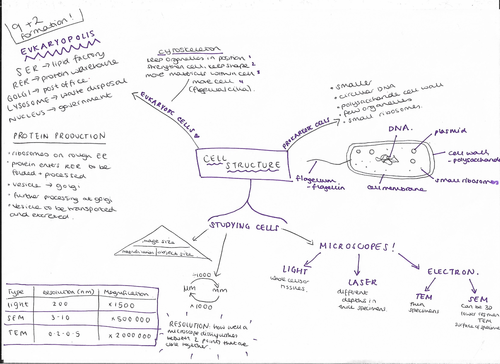 9+2
formation!
EUKARYOPOLIS
SER → lipid factory
RER → protein warehouse
GOLGI → post office
LYSOSOME → waste disposal
NUCLEUS → government
PROTEIN PRODUCTION
• ribosomes on rough ER
• protein enters RER to be
folded + processed
• vesicle → golgi
• further processing at golgi
• vesicle to be transported
and excreted.
cytoskeleton
keep organelles in position,
strengthen cell, keep shape &
move materials within cell &
move cell
(flagella/cilia).
EUKARYOTIC CELLS
PROKARYOTIC CELLS
• smaller
• circular DNA
• polysaccharide cell wall
• few organelles
• small ribosomes.
DNA.
plasmid
cell wall
- polysaccharide
small ribosomes
cell membrane
flagellum
- flagellin
CELL
STRUCTURE
STUDYING CELLS
image size
magnification
object size
÷1000
µm
mm
×1000
RESOLUTION: how well a
microscope distinguishes
between 2 points that are
close together.
MICROSCOPES!
LIGHT
whole cells or
tissues.
LASER
different
depths in
thick specimens.
ELECTRON.
TEM
thin
specimens
SEM
Can be 3D
lower res than
TEM
surface of specimen
TYPE
Resolution (nm)
Magnification
light
200
×1500
SEM
3-10
×500 000
TEM
0.2-0.5
×2000000